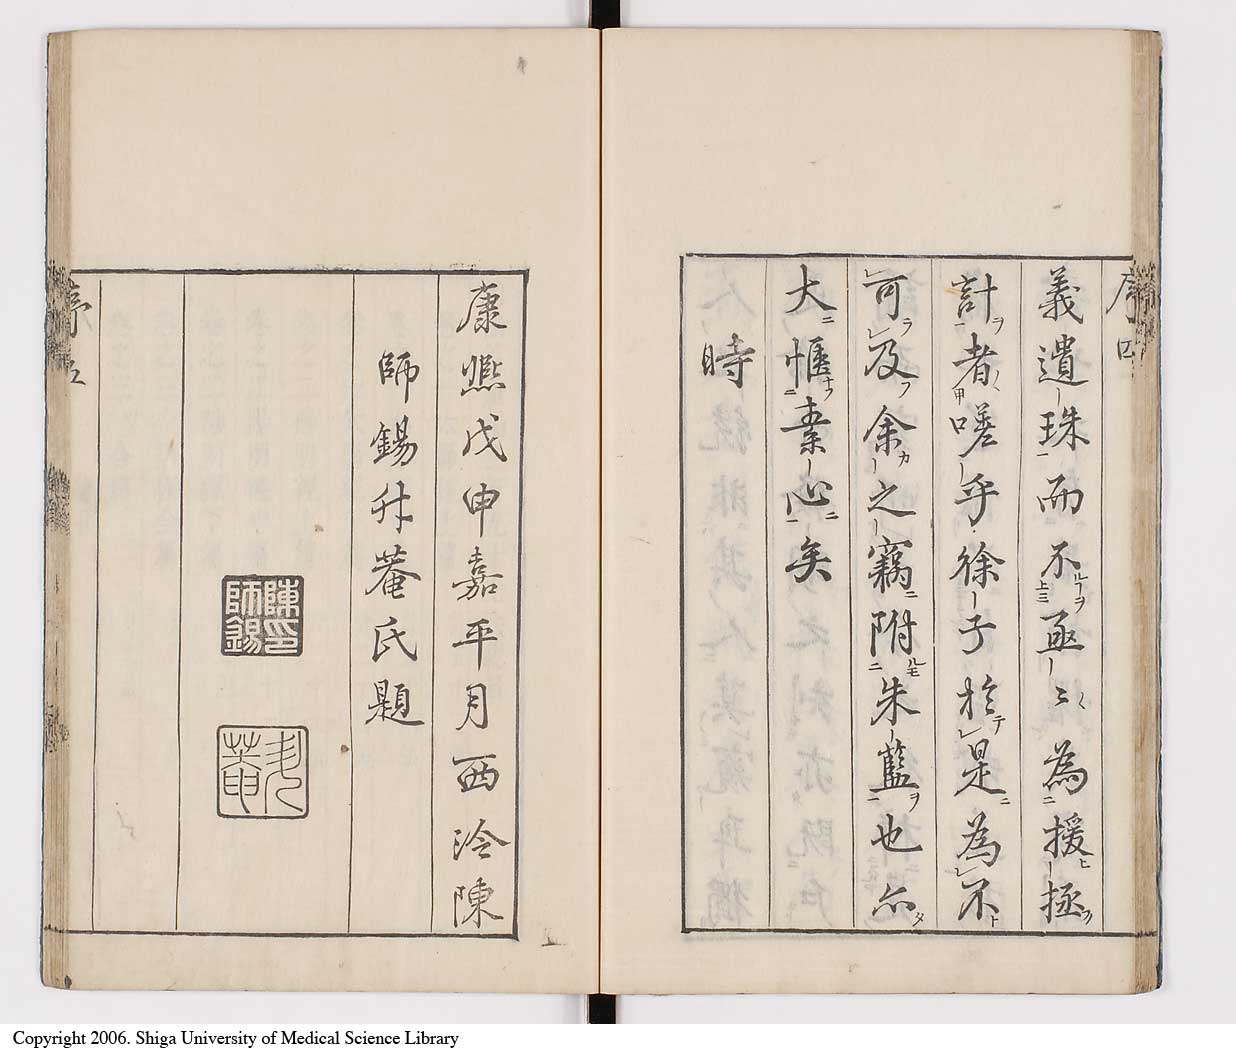 序四
義遺珠而不亟〻為援拯
計者嗟乎徐子於是為不
可及余之竊附朱藍也亦
大愜素心矣
時
康熈戊申嘉平月西泠陳
師錫升菴氏題
陳印
師錫
序五
Copyright 2006. Shiga University of Medical Science Library